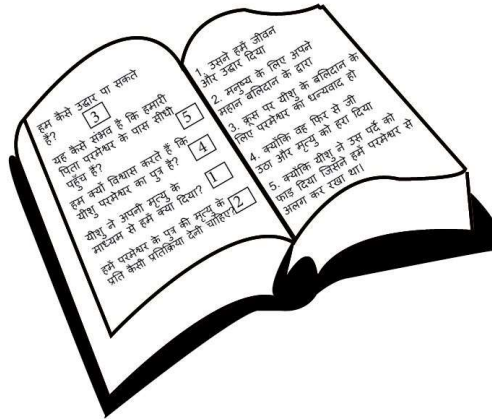 हम कैसे उद्धार पा सकते
हैं? 3
यह कैसे संभव है कि हमारी
पिता परमेश्वर के पास सीधी
पहुँच है? 5
हम क्यों विश्वास करते हैं कि
यीशु परमेश्वर का पुत्र है? 4
यीशु ने अपनी मृत्यु के
माध्यम से हमें क्या दिया? 1
हमें परमेश्वर के पुत्र की मृत्यु के
प्रति कैसी प्रतिक्रिया देनी चाहिए? 2
1. उसने हमें जीवन
और उद्धार दिया
2. मनुष्य के लिए अपने
महान बलिदान के द्वारा
3. क्रूस पर यीशु के बलिदान के
लिए परमेश्वर का धन्यवाद हो
4. क्योंकि वह फिर से जी
उठा और मृत्यु को हरा दिया
5. क्योंकि यीशु ने उस पर्दे को
फाड़ दिया जिसने हमें परमेश्वर से
अलग कर रखा था।